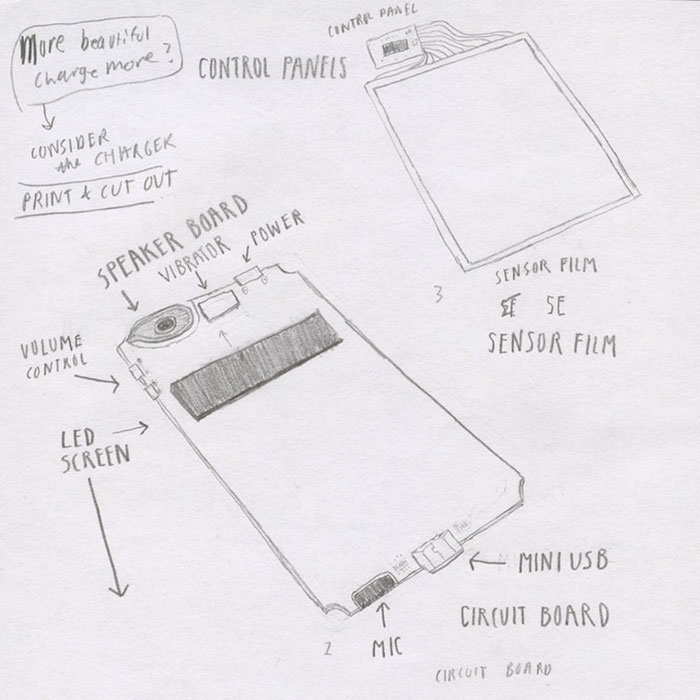 More beautiful
charge more?
CONSIDER
the CHARGER
PRINT & CUT OUT
CONTROL PANELS
CONTROL PANEL
SPEAKER BOARD
VIBRATOR
POWER
VOLUME
CONTROL
LED
SCREEN
SENSOR FILM
3
SE
SENSOR FILM
MINI USB
CIRCUIT BOARD
2
MIC
CIRCUIT BOARD